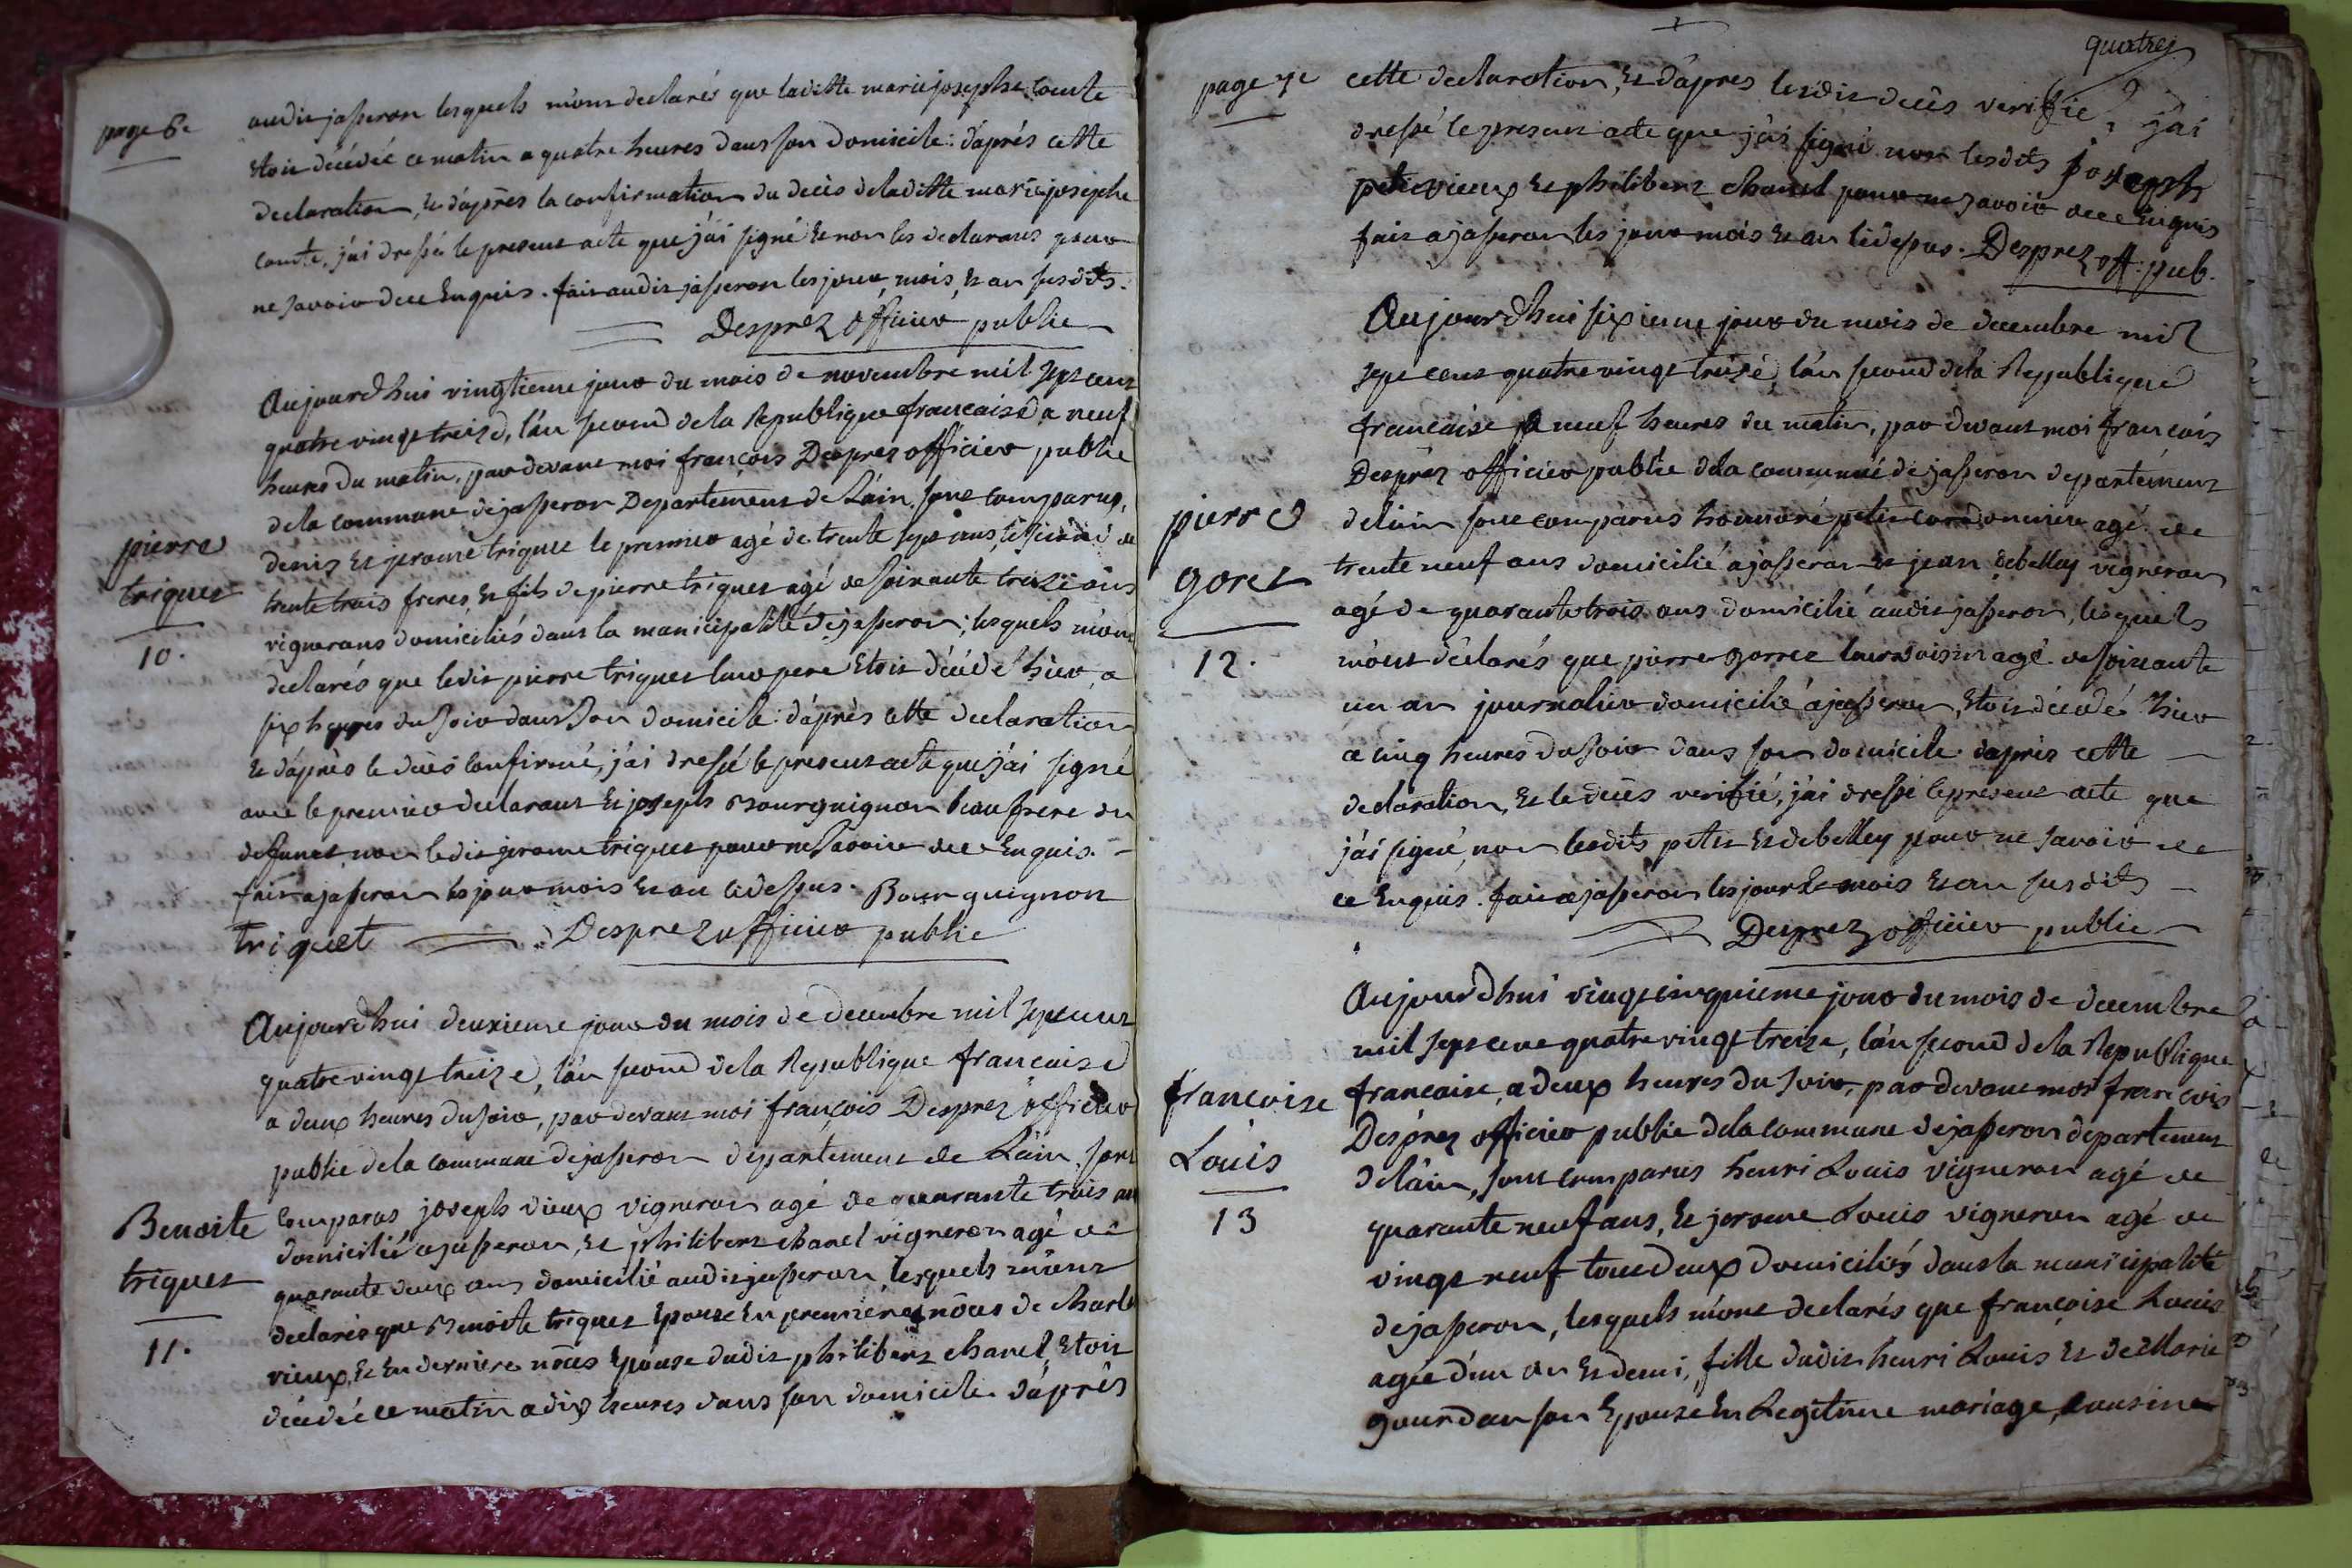 page 6e
audit jasseron lesquels m'ont declarés que laditte marie josephe comte
etoit décédée ce matin a quatre heures dans son domicile: d'aprés cette
declaration, et d'aprés la confirmation du decés de laditte marie josephe
comte, j'ai dressé le present acte que j'ai signé et non les declarans pour
ne savoir de ce enquis. fait audit jasseron les jour, mois, et an susdits.
Desprez officier public
Aujourd'hui vingtieme jour du mois de novembre mil sept cent
quatre vingt treize, l'an second de la Republique francaise a neuf
heures du matin, par devant moi françois Desprez officier public
de la commune de jasseron Departement de L'ain, sont comparus,
pierre
triquet
10.
denis et jerome triquet le premier agé de trente sept ans, le second de
trente trois freres, et fils de pierre triquet agé de soixante treize ans
vignerons domiciliés dans la municipalité de jasseron; lesquels m'ont
declarés que ledit pierre triquet leur pere etoit décédé hier, a
six heures du soir dans son domicile: d'aprés cette declaration
et d'aprés le decés confirmé, j'ai dressé le present acte que j'ai signé
avec le premier declarant et joseph Bourguignon beau frere du
defunct, non ledit jerome triquet pour ne savoir de ce enquis.
fait a jasseron les jour mois et an ci dessus. Bourguignon
triquet Desprez officier public
Aujourd'hui deuxieme jour du mois de decembre mil sept cent
quatre vingt treize, l'an second de la Republique francaise
a deux heures du soir, par devant moi françois Desprez officier
public de la commune de jasseron departement de L'ain, sont
Benoite
triquet
11.
comparus joseph vieux vigneron agé de quarante trois ans
domicilié a jasseron, et philibert chanel vigneron agé de
quarante deux ans domicilié audit jasseron, lesquels m'ont
declarés que Benoite triquet epouse en premieres nôces de charle
vieux, et en derniere nôces epouse dudit philibert chanel, etoit
décédée ce matin a dix heures dans son domicile d'aprés
quatre
page 7e
cette declaration, et d'apres lesdit decés verifié, j'ai
dressé le present acte que j'ai signé non lesdits joseph
vieux et philibert chanel pour ne savoir de ce enquis
fait a jasseron les jour mois et an ci dessus. Desprez off. pub.
Aujourd'hui sixieme jour du mois de decembre mil
sept cent quatre vingt treize, l'an second de la Republique
francaise a neuf heures du matin, par devant moi françois
Desprez officier public de la communé de jasseron departement
pierre
goret
12.
de l'ain sont comparus honnoré petit cordonnier agé de
trente neuf ans domicilié a jasseron et jean debelley vigneron
agé de quarante trois ans domicilié audit jasseron, lesquels
m'ont déclarés que pierre gorree leur voisin agé de soixante
un an journalier domicilié a jasseron, etoit décédé hier
a cinq heures du soir dans son domicile d'aprés cette
declaration, et le decés verifié, j'ai dressé le present acte que
j'ai signé, non lesdits petit et debelley pour ne savoir de
ce enquis. fait a jasseron les jour et mois et an susdits
Desprez officier public
Aujourd'hui vingt cinquieme jour du mois de decembre
mil sept cent quatre vingt treize, l'an second de la Republique
francoise
Louis
13
francaise, a deux heures du soir, par devant moi francois
Desprez officier public de la commune de jasseron departement
de l'ain, sont comparus henri Louis vigneron agé de
quarante neuf ans, et jerome Louis vigneron agé de
vingt neuf tous deux domiciliés dans la municipalité
de jasseron, lesquels m'ont declarés que françoise Louis
agée d'un an et demi, fille dudit henri Louis et de Marie
gourdan son epouse en Legitime mariage, cousine